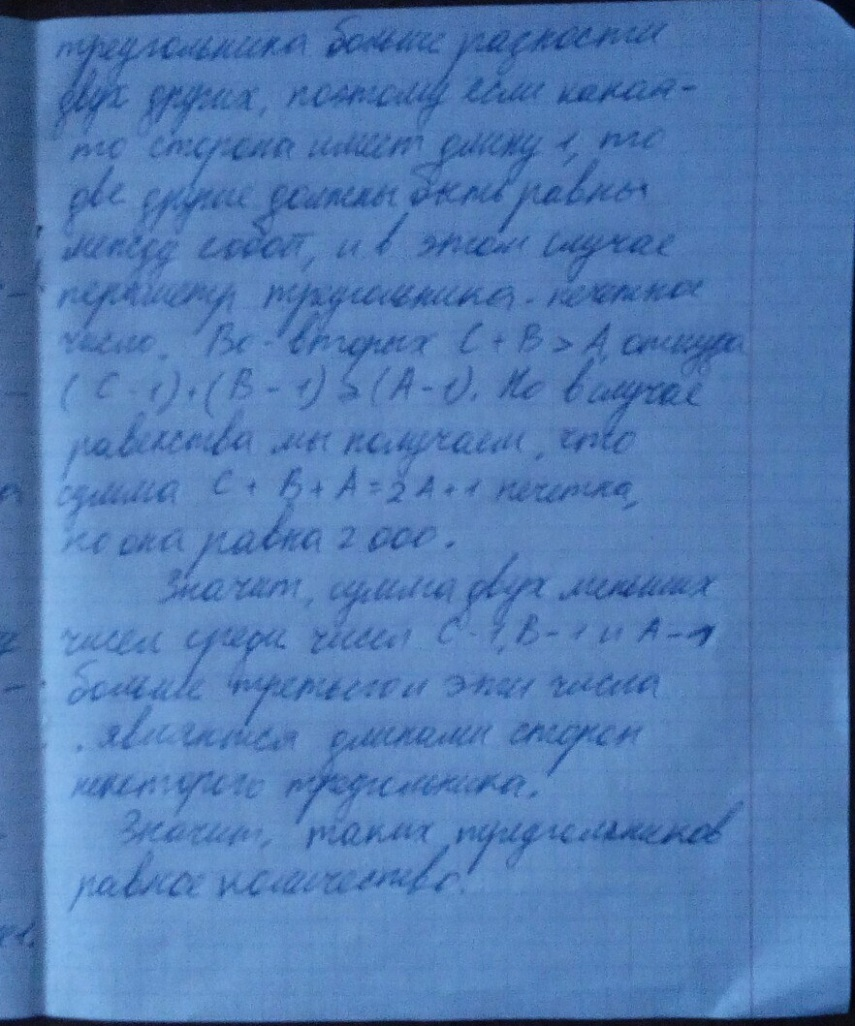 треугольника больше разности
двух других, поэтому если какая-
то сторона имеет длину 1, то
две другие должны быть равны
между собой, и в этом случае
периметр треугольника - нечетное
число. Во-вторых C + B > A, откуда
(C - 1) + (B - 1) ≥ (A - 1). Но в случае
равенства мы получаем, что
сумма C + B + A = 2A + 1 нечетна,
но она равна 2000.
Значит, сумма двух меньших
чисел среди чисел C-1, B-1 и A-1
больше третьего и эти числа
являются длинами сторон
некоторого треугольника.
Значит, таких треугольников
равное количество.